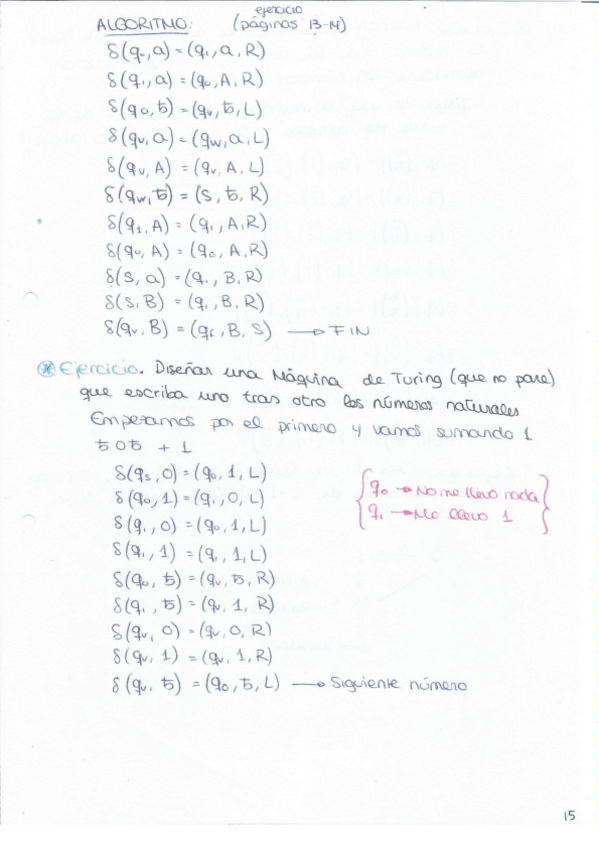 ejercicio
ALGORITMO: (páginas 13-14)
δ(q₀,a) = (q₁,a,R)
δ(q₁,a) = (q₀,A,R)
δ(q₀,ƀ) = (qᵥ,ƀ,L)
δ(qᵥ,a) = (qw,a,L)
δ(qᵥ,A) = (qᵥ,A,L)
δ(qw,ƀ) = (s,ƀ,R)
δ(q₁,A) = (q₁,A,R)
δ(q₀,A) = (q₀,A,R)
δ(s,a) = (q₁,B,R)
δ(s,B) = (q₁,B,R)
δ(qᵥ,B) = (qf,B,S) → FIN
* Ejercicio. Diseñar una Máquina de Turing (que no pare)
que escriba uno tras otro los números naturales
Empezamos por el primero y vamos sumando 1
ƀ0ƀ + 1
δ(qs,0) = (q₀,1,L)
δ(q₀,1) = (q₁,0,L)
δ(q₁,0) = (q₀,1,L)
δ(q₁,1) = (q₁,1,L)
δ(q₀,ƀ) = (qᵥ,ƀ,R)
δ(q₁,ƀ) = (qᵥ,1,R)
δ(qᵥ,0) = (qᵥ,0,R)
δ(qᵥ,1) = (qᵥ,1,R)
δ(qᵥ,ƀ) = (q₀,ƀ,L) → Siguiente número
q₀ → No me llevo nada
q₁ → Me llevo 1
15